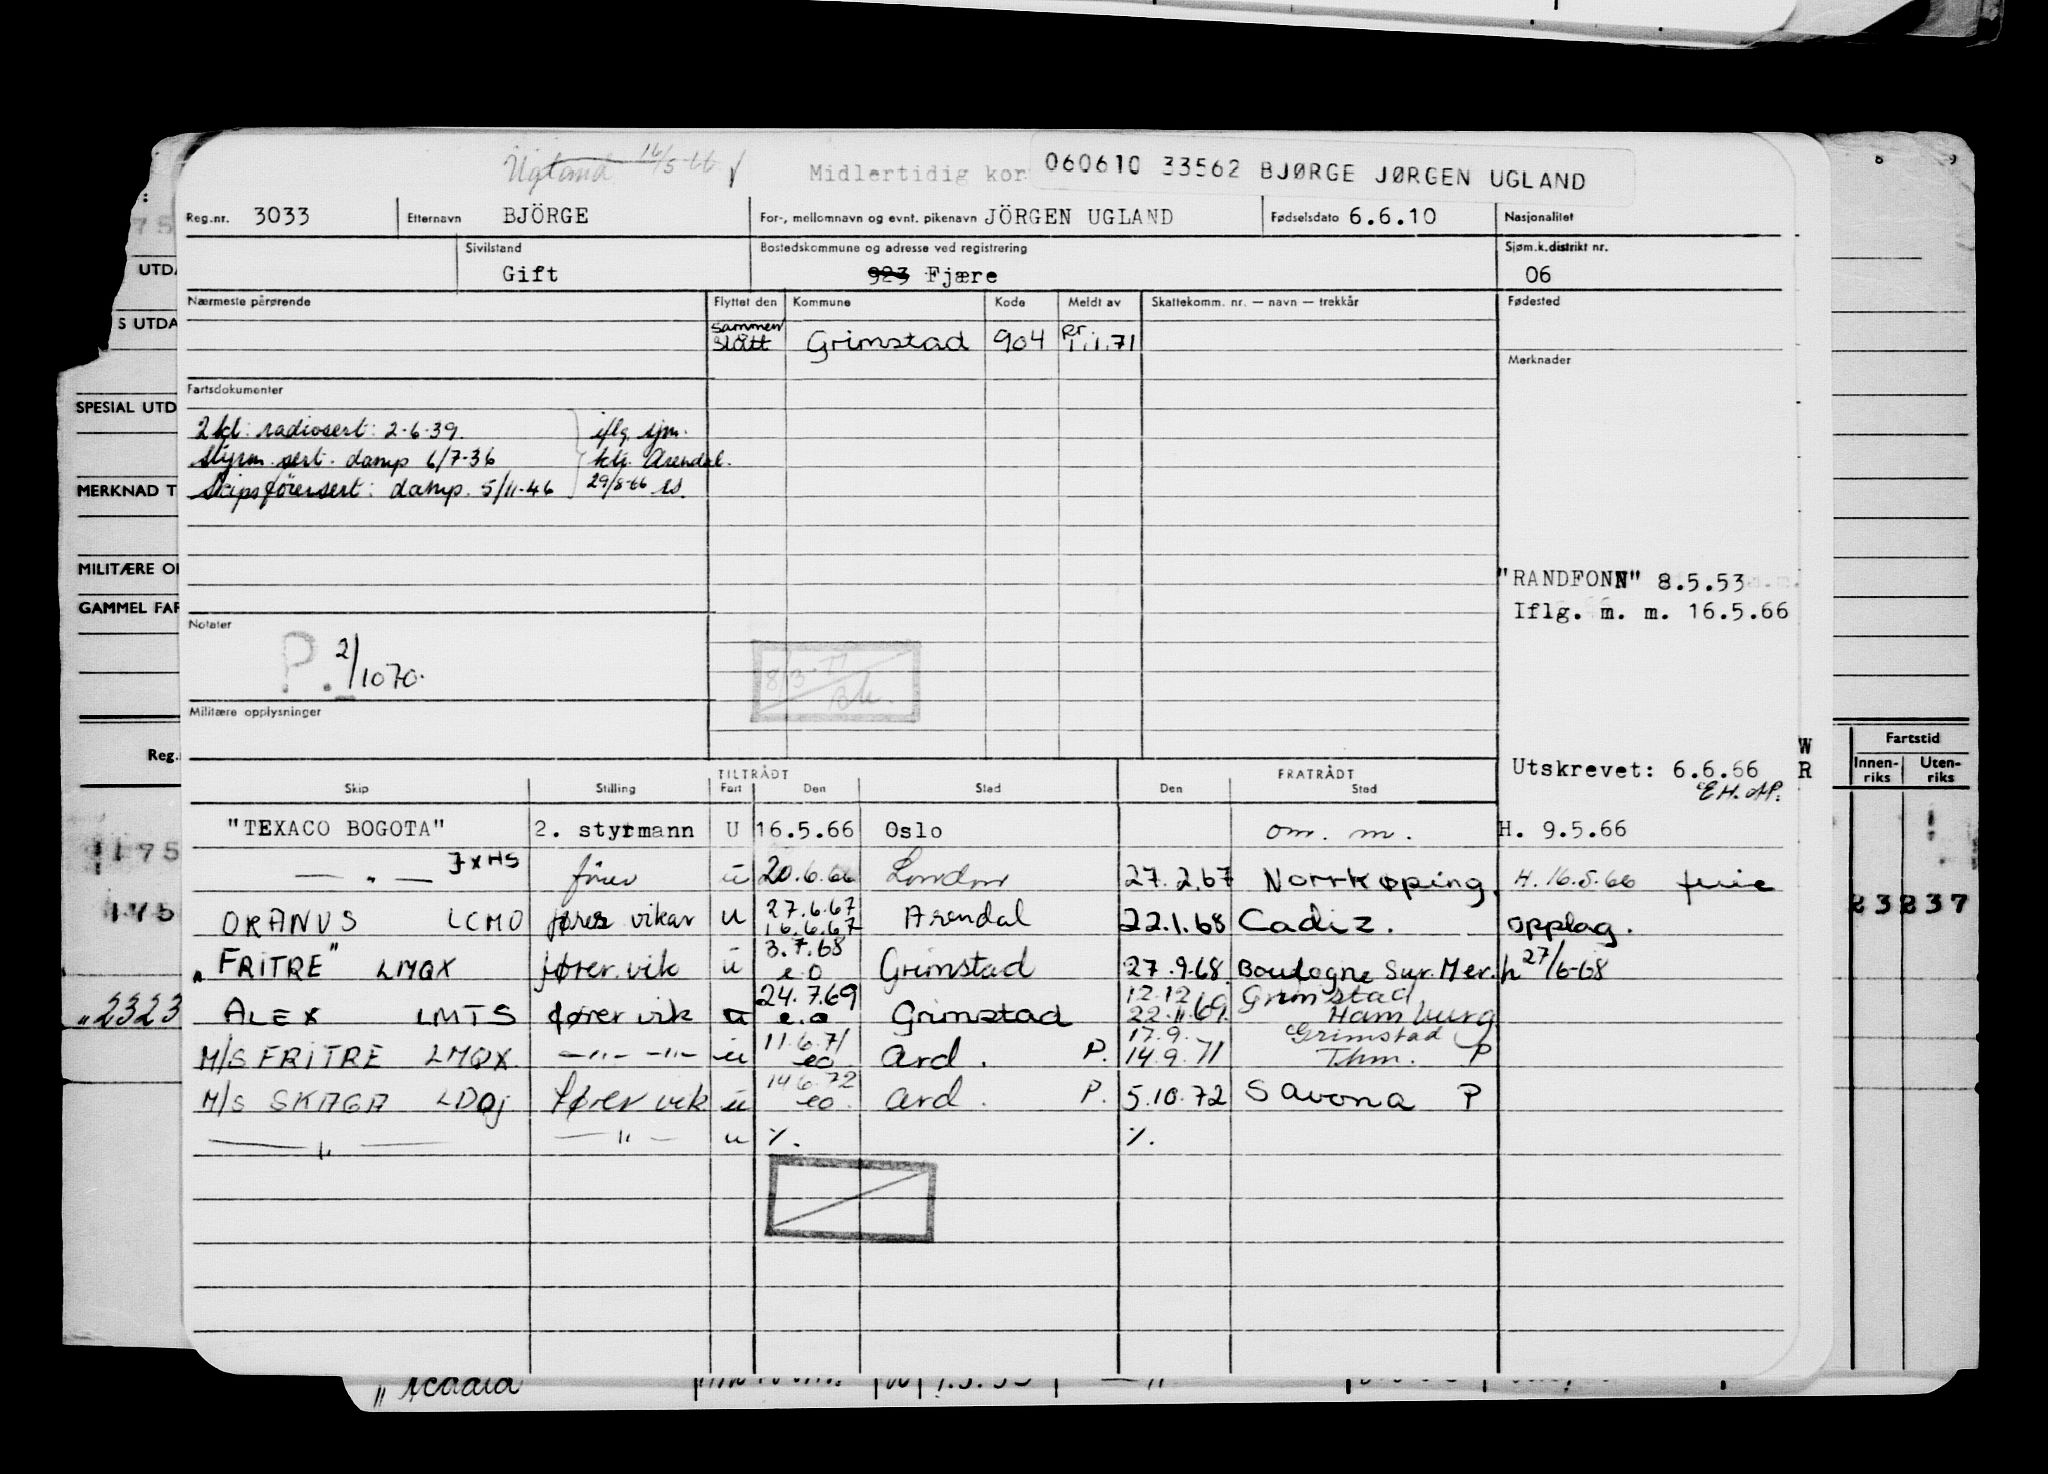 Ugland 16/5-66
Midlertidig kor 060610 33562 BJØRGE JØRGEN UGLAND
Reg.nr. 3033 Etternavn BJÖRGE For-, mellomnavn og evnt. pikenavn JÖRGEN UGLAND Fødselsdato 6.6.10 Nasjonalitet
Sivilstand Gift Bostedskommune og adresse ved registrering 923 Fjære Sjøm.k.distrikt nr. 06
Nærmeste pårørende Flyttet den Kommune Kode Meldt av Skattekomm. nr. — navn — trekkår Fødested
Sammen
slått Grimstad 904 pr. 1.1.71
Merknader
Fartsdokumenter
2 kl: radiosert: 2-6-39. iflg. sjm.
Styrm. sert. damp 6/7-36 ktr. Arendal.
Skipsförersert: damp. 5/11-46 29/8-66
"RANDFONN" 8.5.53
Iflg. m. m. 16.5.66
Notater
P. 2/1070.
8/3-77
Militære opplysninger
Utskrevet: 6.6.66
TILTRÅDT FRATRÅDT
Skip Stilling Fart Den Sted Den Sted
"TEXACO BOGOTA" 2. styrmann U 16.5.66 Oslo om. m. H. 9.5.66
— " — JXHS förer u 20.6.66 London 27.2.67 Norrkøping. H. 16.5.66 ferie
ORANUS LCMO fører vikar u 27.6.67 16.6.67 Arendal 22.1.68 Cadiz. opplag.
"FRITRE" LMQX fører. vik u 3.7.68 e.o Grimstad 27.9.68 Boulogne Sur. Mer. h 27/6-68
ALEX LMTS fører vik u 24.7.69 e.o Grimstad 12.12 22.11.69 Grimstad Hamburg
M/S FRITRE LMQX — " — — " — u 11.6.71 eo Ard. P. 17.9. 14.9.71 Grimstad Thm. P
M/S SKAGA LDQJ fører vik u 14.6.72 eo. Ard. P. 5.10.72 Savona P
— " — — " — u %. %.
UTDA
S UTDA
SPESIAL UTD
MERKNAD T
MILITÆRE O
GAMMEL FAR
Reg.
175
175
"2323
W
R
Fartstid
Innen-
riks
Uten-
riks
23237